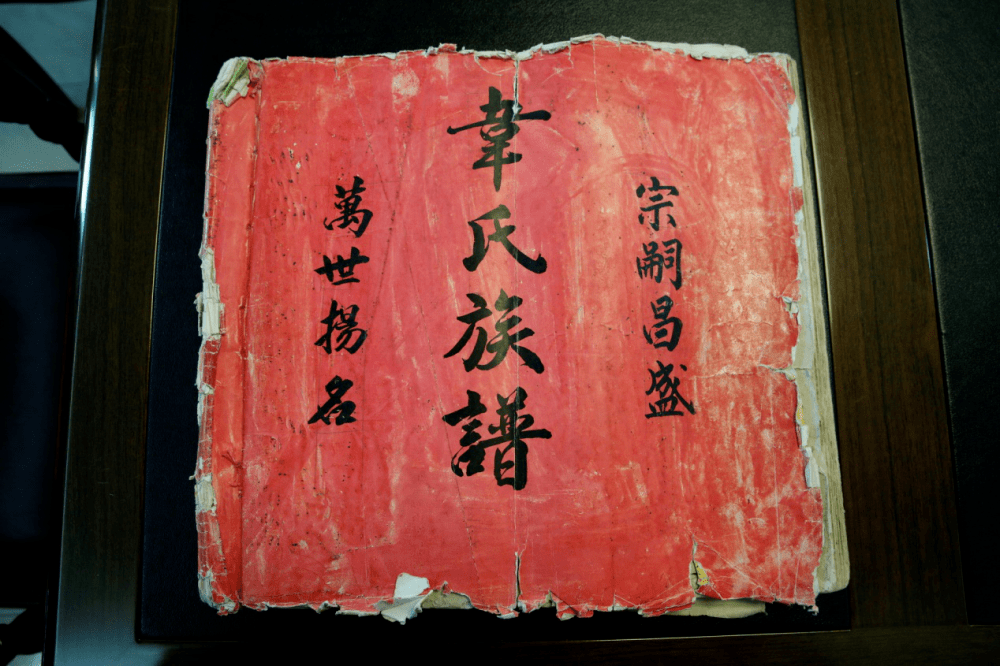 宗嗣昌盛
韋氏族譜
萬世揚名